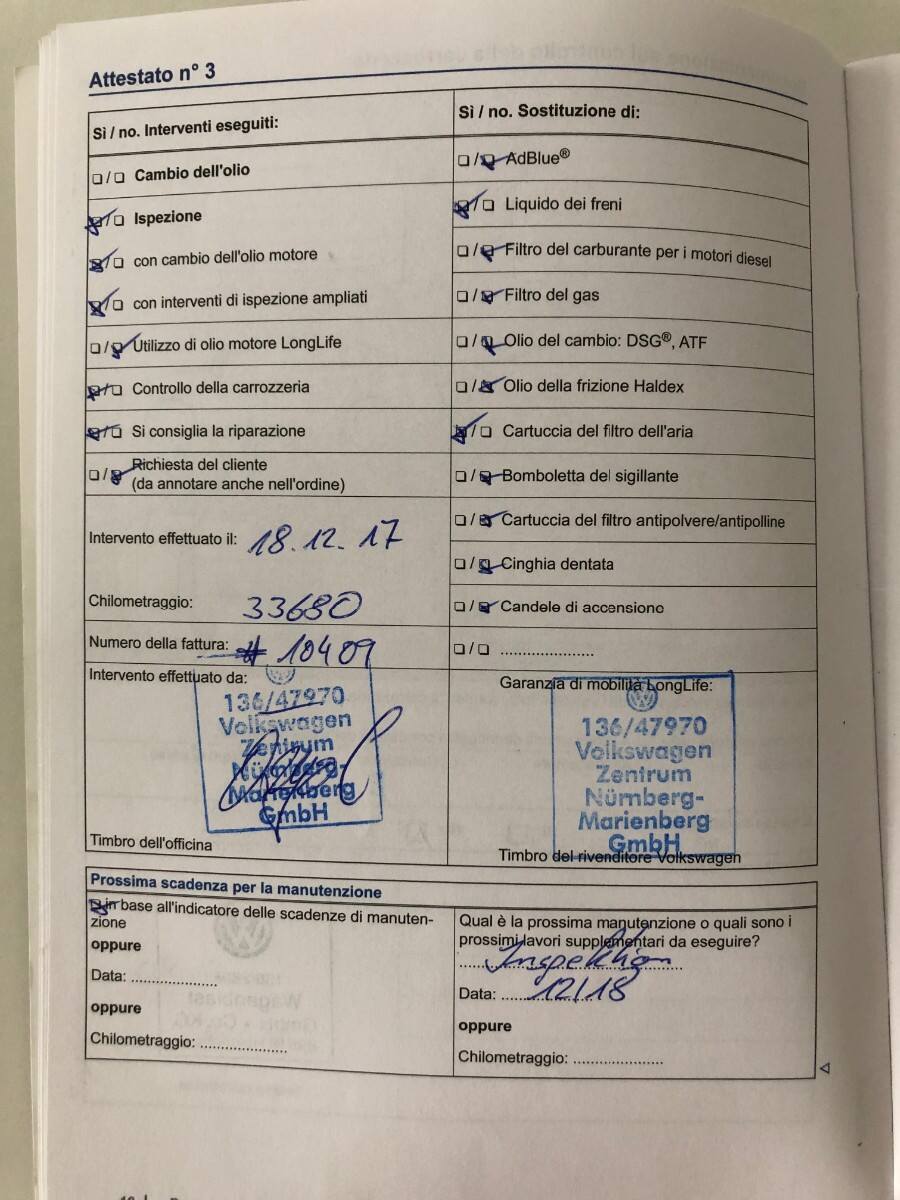 Attestato n° 3
Sì / no. Interventi eseguiti:
❏ / ❏ Cambio dell'olio
❏ / ❏ Ispezione
❏ / ❏ con cambio dell'olio motore
❏ / ❏ con interventi di ispezione ampliati
❏ / ❏ Utilizzo di olio motore LongLife
❏ / ❏ Controllo della carrozzeria
❏ / ❏ Si consiglia la riparazione
❏ / ❏ Richiesta del cliente
(da annotare anche nell'ordine)
Intervento effettuato il: 18.12.17
Chilometraggio: 33680
Numero della fattura: # 10409
Intervento effettuato da:
136/47970
Volkswagen
Zentrum
Nürnberg-
Marienberg
GmbH
Timbro dell'officina
Sì / no. Sostituzione di:
❏ / ❏ AdBlue®
❏ / ❏ Liquido dei freni
❏ / ❏ Filtro del carburante per i motori diesel
❏ / ❏ Filtro del gas
❏ / ❏ Olio del cambio: DSG®, ATF
❏ / ❏ Olio della frizione Haldex
❏ / ❏ Cartuccia del filtro dell'aria
❏ / ❏ Bomboletta del sigillante
❏ / ❏ Cartuccia del filtro antipolvere/antipolline
❏ / ❏ Cinghia dentata
❏ / ❏ Candele di accensione
❏ / ❏ ......................
Garanzia di mobilità LongLife:
136/47970
Volkswagen
Zentrum
Nürnberg-
Marienberg
GmbH
Timbro del rivenditore Volkswagen
Prossima scadenza per la manutenzione
❏ in base all'indicatore delle scadenze di manuten-
zione
oppure
Data: ....................
oppure
Chilometraggio: ....................
Qual è la prossima manutenzione o quali sono i
prossimi lavori supplementari da eseguire?
Inspektion
Data: 12/18
oppure
Chilometraggio: .....................